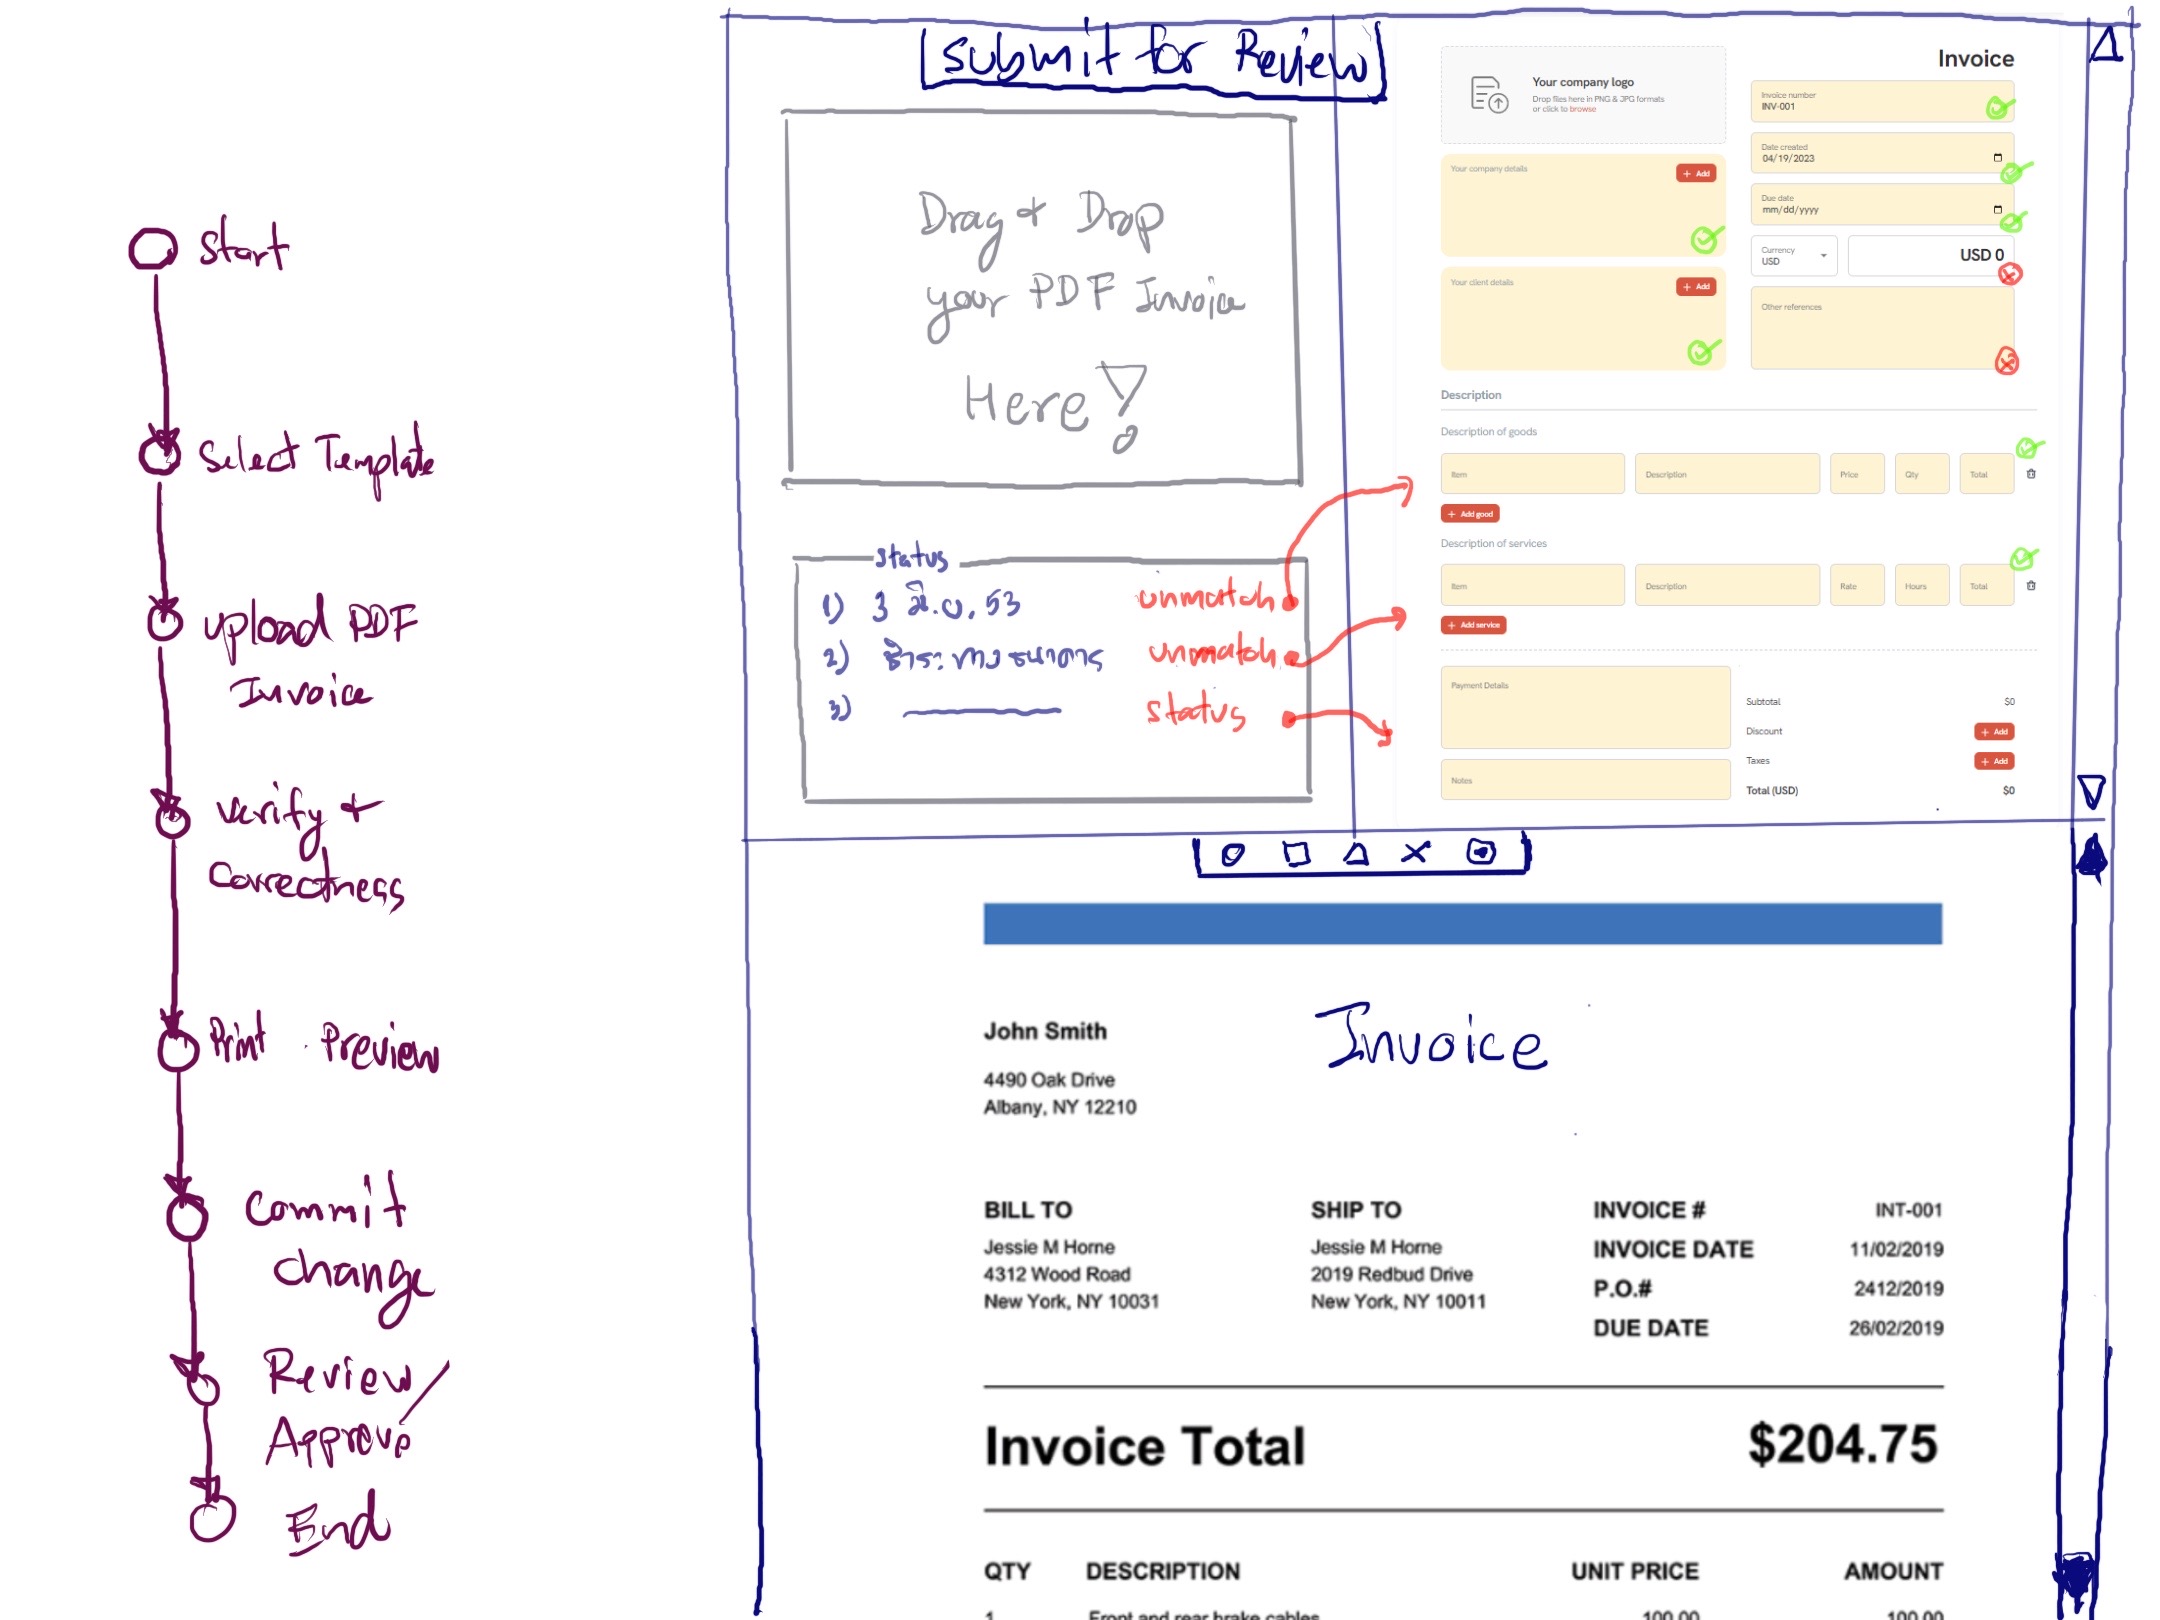 Start
Select Template
upload PDF
Invoice
Verify &
Correctness
Print Preview
Commit
change
Review/
Approve
End
Submit for Review
Drag & Drop
your PDF Invoice
Here!
Status
1) 3 มิ.ย. 53 unmatch
2) ชำระทางธนาคาร unmatch
3) status
Your company logo
Drop files here in PNG & JPG formats
or click to browse
Your company details
+ Add
Your client details
+ Add
Invoice
Invoice number
INV-001
Date created
04/19/2023
Due date
mm/dd/yyyy
Currency
USD
USD 0
Other references
Description
Description of goods
Item Description Price Qty Total
+ Add good
Description of services
Item Description Rate Hours Total
+ Add service
Payment Details
Notes
Subtotal $0
Discount + Add
Taxes + Add
Total (USD) $0
Invoice
John Smith
4490 Oak Drive
Albany, NY 12210
BILL TO
Jessie M Horne
4312 Wood Road
New York, NY 10031
SHIP TO
Jessie M Horne
2019 Redbud Drive
New York, NY 10011
INVOICE # INT-001
INVOICE DATE 11/02/2019
P.O.# 2412/2019
DUE DATE 26/02/2019
Invoice Total $204.75
QTY DESCRIPTION UNIT PRICE AMOUNT
1 Front and rear brake cables 100.00 100.00